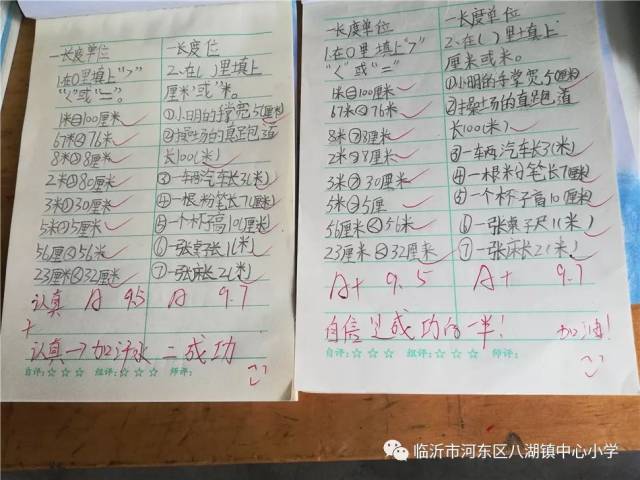 一长度单位
1.在○里填上">"
"<"或"="。
1米=100厘米
67米<76米
8米>8厘米
2米>80厘米
3米>30厘米
5米>5厘米
56厘<56米
23厘米<32厘米
认真 A 9.5
一长度位
2.在( )里填上
厘米或米。
①小明的手掌宽5(厘米)
②操场的直跑道
长100(米)
③一车两汽车长3(米)
④一根粉笔长7(厘米)
⑤一个杯子高10(厘米)
⑥一张桌子长1(米)
⑦一张床长2(米)
A 9.7
认真→加汗水=成功
自评:☆☆☆ 组评:☆☆☆ 师评:
一长度单位
1.在○里填上">"
"<"或"="
1米=100厘米
67米<76米
8米>3厘米
2米>8厘米
3米>30厘米
5米>5厘
56厘米<56米
23厘米<32厘米
A+ 9.5
一长度单位
2.在( )里填上
厘米或米。
①小明的手掌宽5(厘米)
②操场的直跑道
长100(米)
③一车两汽车长3(米)
④一根粉笔长7厘米)
⑤一个杯子高10(厘米)
⑥一张桌子尺1(米)
⑦一张床长2(米)
A+ 9.7
自信是成功的一半! 加油!
自评:☆☆☆ 组评:☆☆☆ 师评:
临沂市河东区八湖镇中心小学